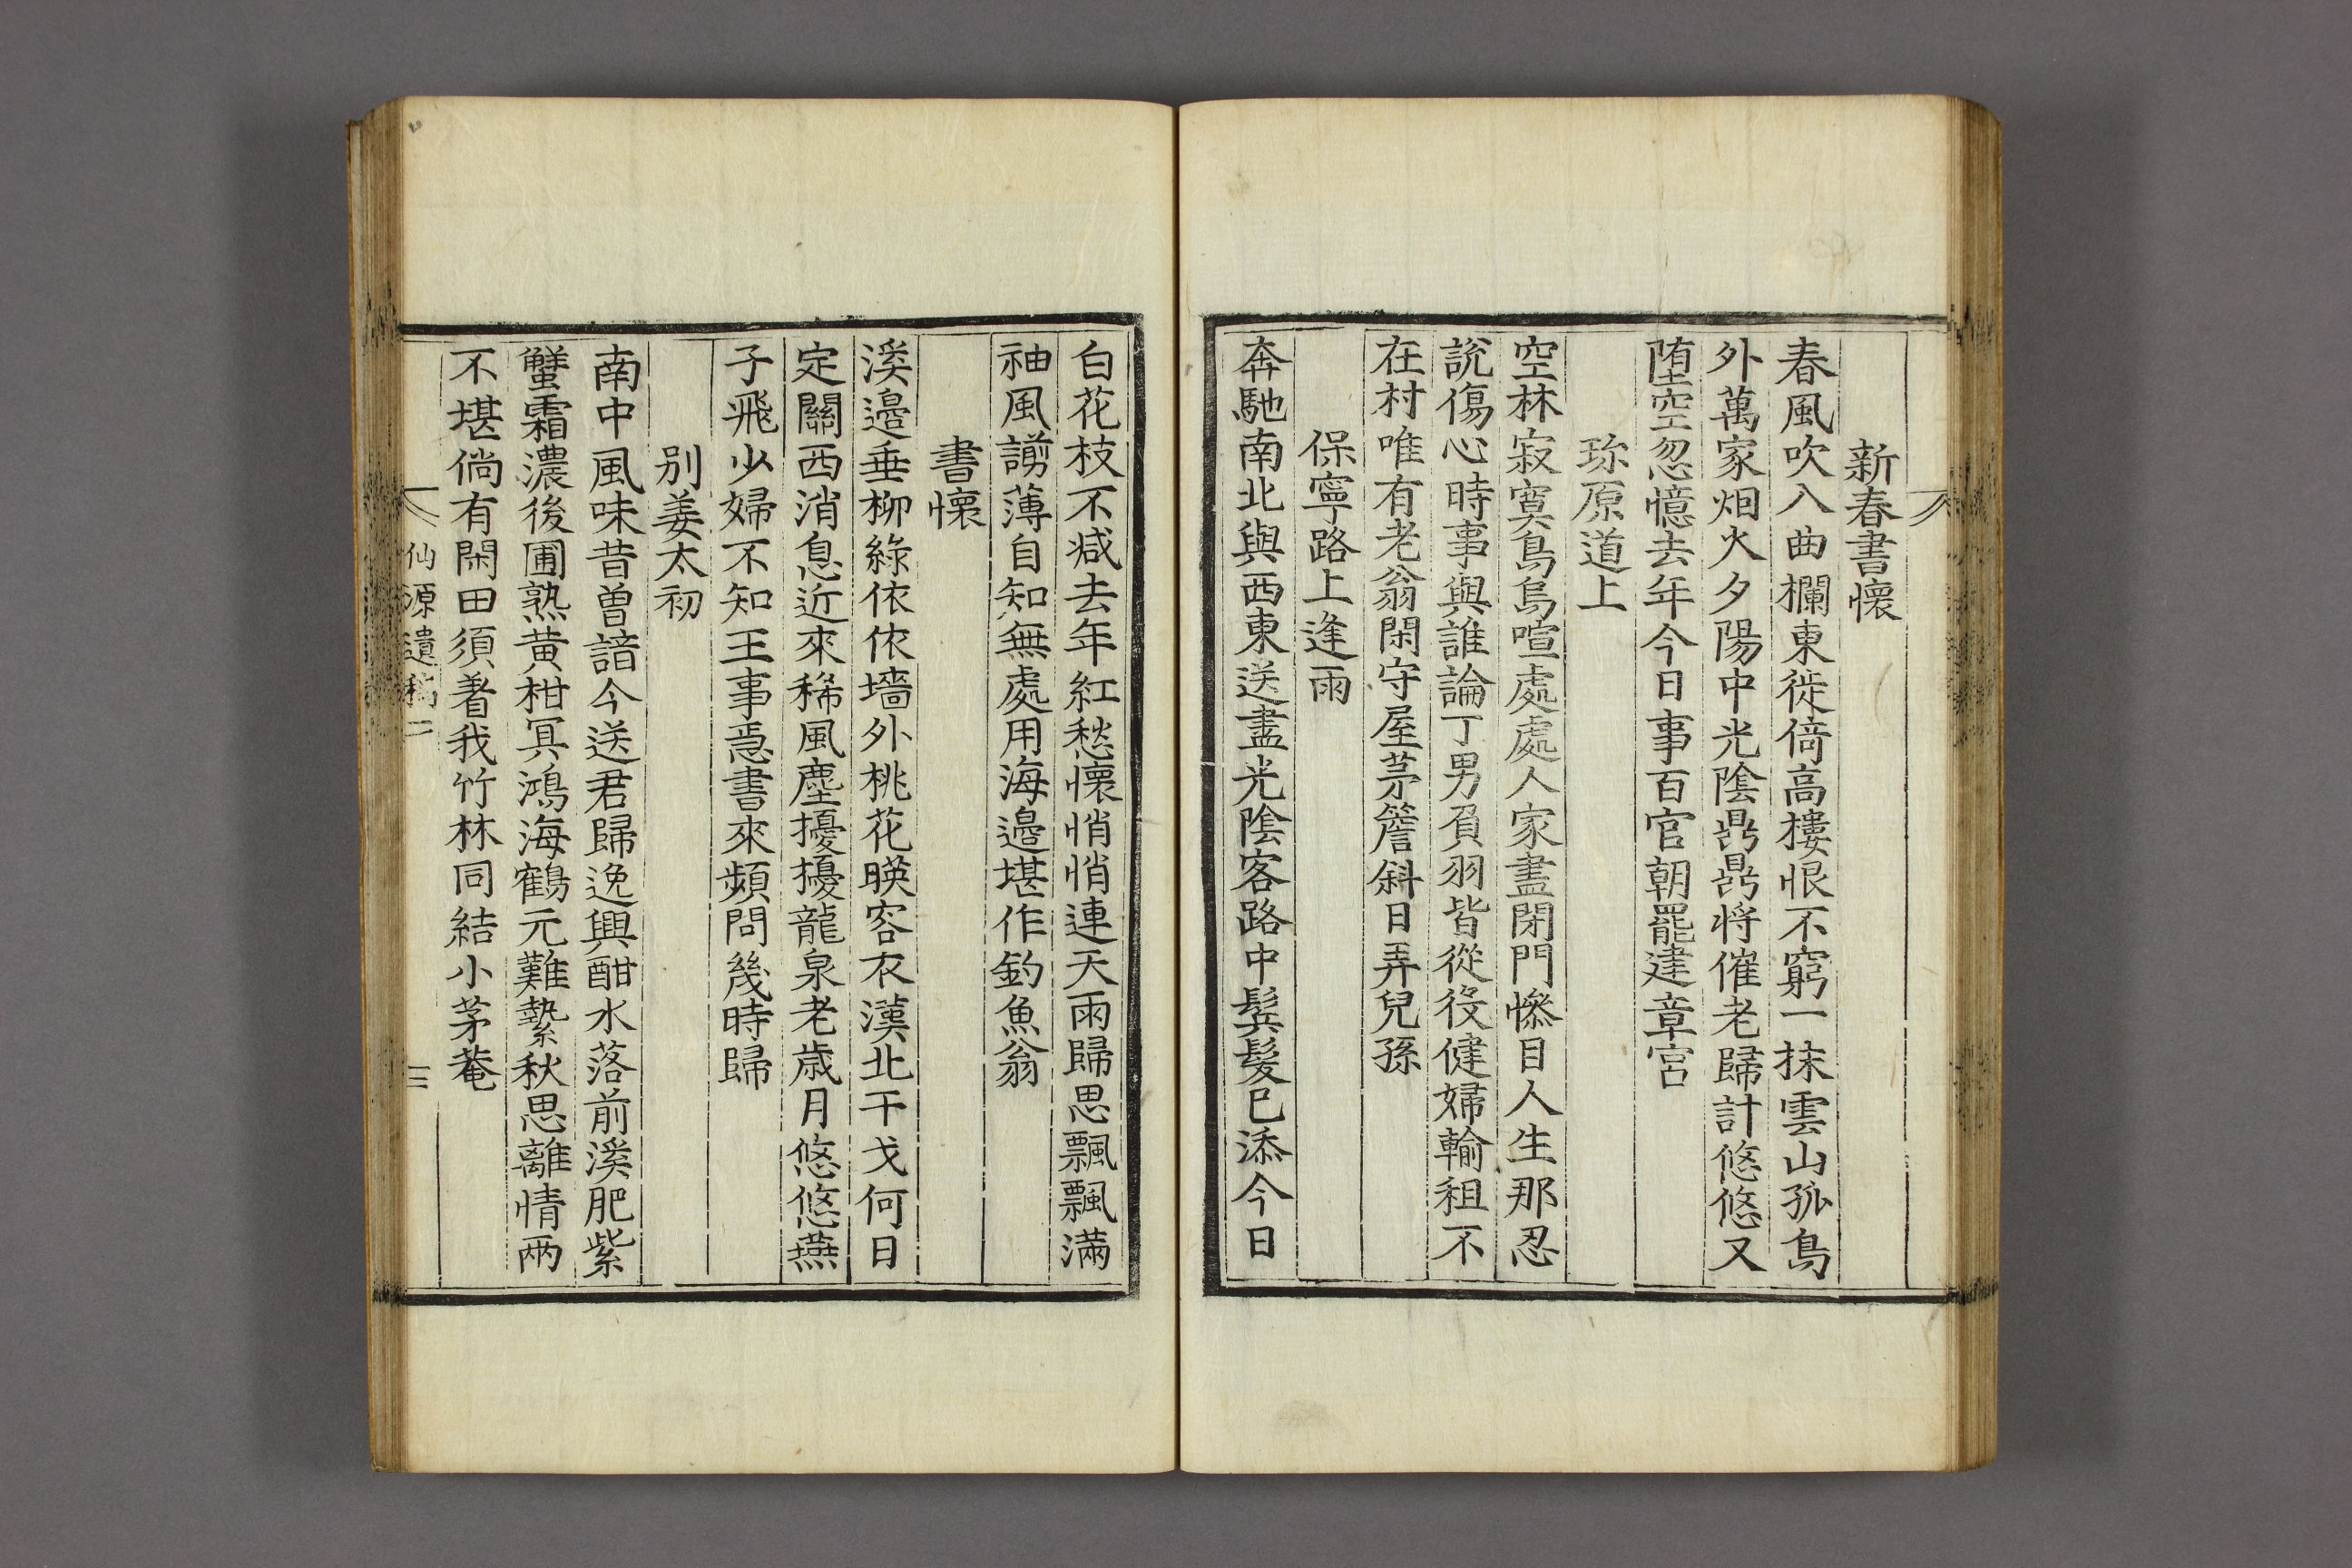 新春書懷
春風吹入曲欄東徙倚高樓恨不窮一抹雲山孤鳥
外萬家烟火夕陽中光陰鼎鼎將催老歸計悠悠又
墮空忽憶去年今日事百官朝罷建章宮
珎原道上
空林寂寞鳥烏喧處處人家盡閉門慘目人生那忍
說傷心時事與誰論丁男負羽皆從役健婦輸租不
在村唯有老翁閑守屋茅簷斜日弄兒孫
保寧路上逢雨
奔馳南北與西東送盡光陰客路中鬓髮已添今日
白花枝不减去年紅愁懷悄悄連天雨歸思飄飄滿
袖風謭薄自知無處用海邉堪作釣魚翁
書懷
溪邉垂柳綠依依墻外桃花暎客衣漢北干戈何日
定關西消息近來稀風塵擾擾龍泉老歲月悠悠燕
子飛少婦不知王事急書來頻問幾時歸
别姜太初
南中風味昔曾諳今送君歸逸興酣水落前溪肥紫
蟹霜濃後圃熟黄柑冥鴻海鶴元難縶秋思離情兩
不堪倘有閑田須着我竹林同結小茅菴
仙源遺稿二 三